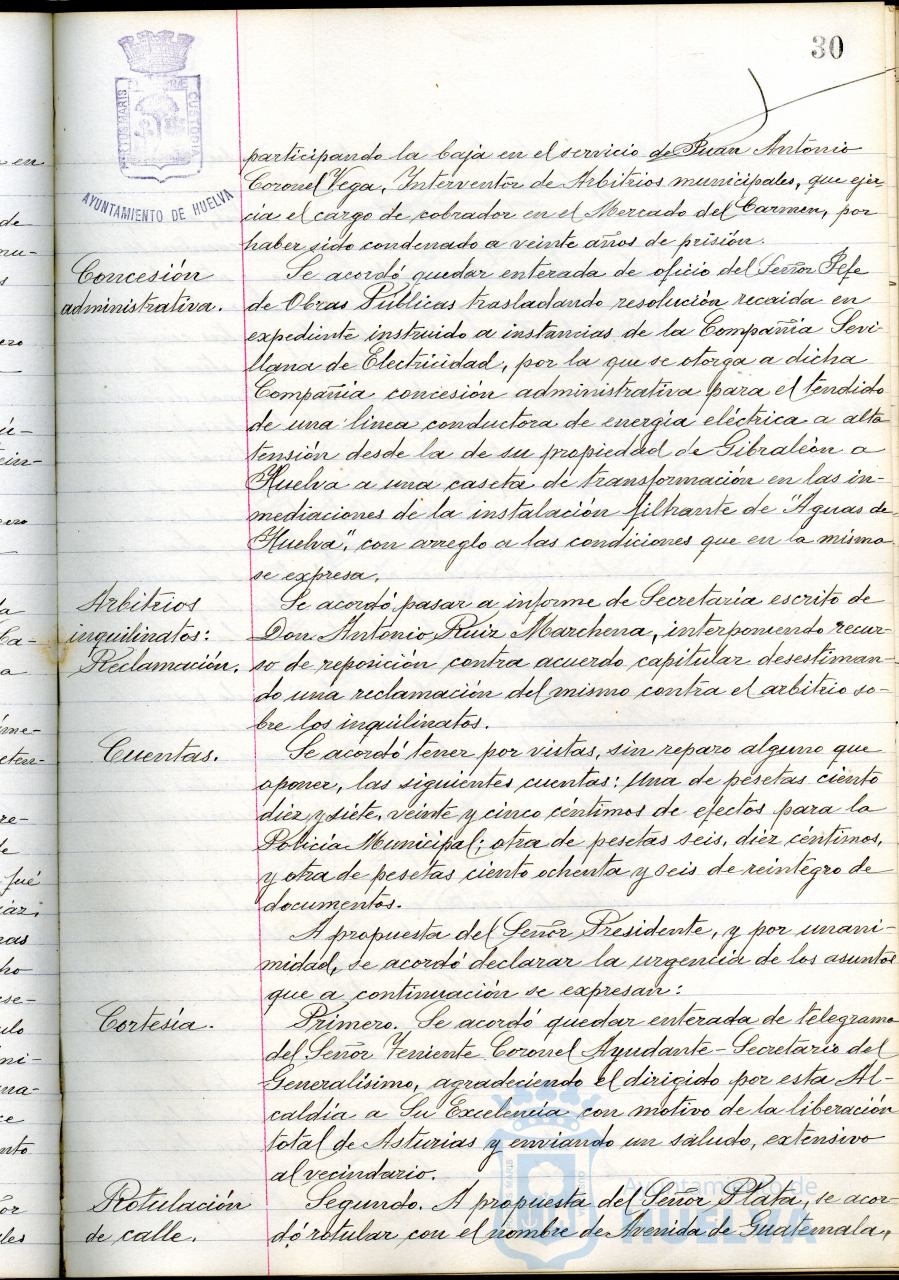 30
PORTUS MARIS
CUSTODIA
AYUNTAMIENTO DE HUELVA
participando la baja en el servicio de Juan Antonio
Coronel Vega, Interventor de Arbitrios municipales, que ejer
cía el cargo de cobrador en el Mercado del Carmen, por
haber sido condenado a veinte años de prisión.
Concesión
administrativa.
Se acordó quedar enterada de oficio del Señor Jefe
de Obras Públicas trasladando resolución recaida en
expediente instruido a instancias de la Compañía Sevi-
llana de Electricidad, por la que se otorga a dicha
Compañía concesión administrativa para el tendido
de una línea conductora de energía eléctrica a alta
tensión desde la de su propiedad de Gibraleón a
Huelva a una caseta de transformación en las in-
mediaciones de la instalación filtrante de "Aguas de
Huelva", con arreglo a las condiciones que en la misma
se expresa.
Arbitrios
inquilinatos:
Reclamación.
Se acordó pasar a informe de Secretaría escrito de
Don Antonio Ruiz Marchena, interponiendo recur-
so de reposición contra acuerdo capitular desestiman-
do una reclamación del mismo contra el arbitrio so-
bre los inquilinatos.
Cuentas.
Se acordó tener por vistas, sin reparo alguno que
oponer, las siguientes cuentas: Una de pesetas ciento
diez y siete, veinte y cinco céntimos de efectos para la
Policía Municipal; otra de pesetas seis, diez céntimos,
y otra de pesetas ciento ochenta y seis de reintegro de
documentos.
A propuesta del Señor Presidente, y por unani-
midad, se acordó declarar la urgencia de los asuntos
que a continuación se expresan:
Cortesía.
Primero. Se acordó quedar enterada de telegrama
del Señor Teniente Coronel Ayudante-Secretario del
Generalísimo, agradeciendo el dirigido por esta Al-
caldía a Su Excelencia con motivo de la liberación
total de Asturias y enviando un saludo, extensivo
al vecindario.
Rotulación
de calle.
Segundo. A propuesta del Señor Plata, se acor-
dó rotular con el nombre de Avenida de Guatemala,
Ayuntamiento de
HUELVA